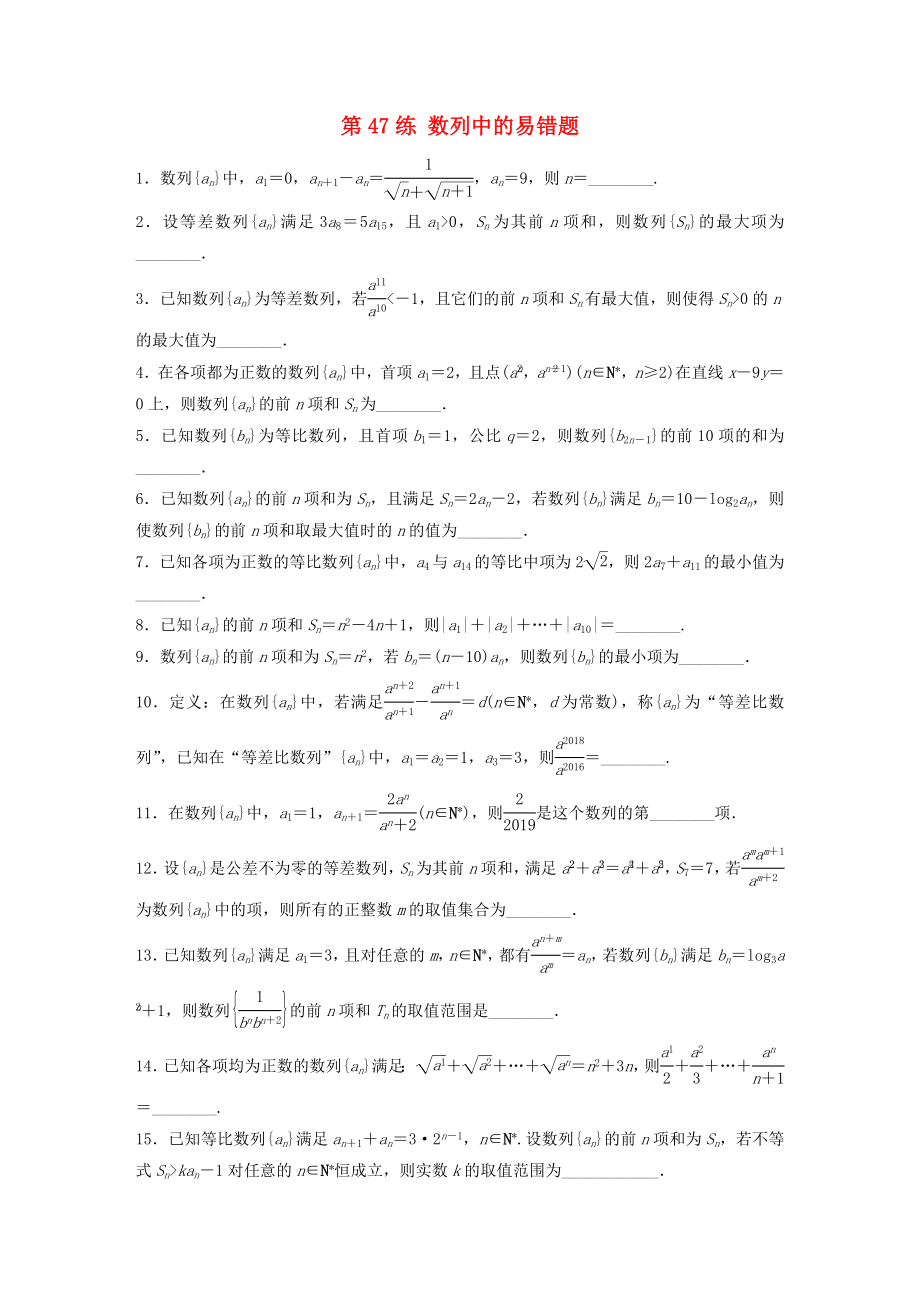 第47练 数列中的易错题
1．数列{an}中，a1＝0，an＋1－an＝1/(√n＋√(n＋1))，an＝9，则n＝________.
2．设等差数列{an}满足3a8＝5a15，且a1>0，Sn为其前n项和，则数列{Sn}的最大项为
________．
3．已知数列{an}为等差数列，若a11/a10<－1，且它们的前n项和Sn有最大值，则使得Sn>0的n
的最大值为________．
4．在各项都为正数的数列{an}中，首项a1＝2，且点(a，an－1)(n∈N*，n≥2)在直线x－9y＝
0上，则数列{an}的前n项和Sn为________．
5．已知数列{bn}为等比数列，且首项b1＝1，公比q＝2，则数列{b2n－1}的前10项的和为
________．
6．已知数列{an}的前n项和为Sn，且满足Sn＝2an－2，若数列{bn}满足bn＝10－log2an，则
使数列{bn}的前n项和取最大值时的n的值为________．
7．已知各项为正数的等比数列{an}中，a4与a14的等比中项为2√2，则2a7＋a11的最小值为
________．
8．已知{an}的前n项和Sn＝n2－4n＋1，则|a1|＋|a2|＋…＋|a10|＝________.
9．数列{an}的前n项和为Sn＝n2，若bn＝(n－10)an，则数列{bn}的最小项为________．
10．定义：在数列{an}中，若满足an＋2/an＋1－an＋1/an＝d(n∈N*，d为常数)，称{an}为“等差比数
列”，已知在“等差比数列”{an}中，a1＝a2＝1，a3＝3，则a2018/a2016＝________.
11．在数列{an}中，a1＝1，an＋1＝2an/(an＋2)(n∈N*)，则2/2019是这个数列的第________项．
12．设{an}是公差不为零的等差数列，Sn为其前n项和，满足a＋a＝a＋a，S7＝7，若amam＋1/am＋2
为数列{an}中的项，则所有的正整数m的取值集合为________．
13．已知数列{an}满足a1＝3，且对任意的m，n∈N*，都有an＋m/am＝an，若数列{bn}满足bn＝log3a
＋1，则数列{1/(bnbn＋2)}的前n项和Tn的取值范围是________．
14．已知各项均为正数的数列{an}满足：√a1＋√a2＋…＋√an＝n2＋3n，则a1/2＋a2/3＋…＋an/(n＋1)
＝________.
15．已知等比数列{an}满足an＋1＋an＝3·2n－1，n∈N*.设数列{an}的前n项和为Sn，若不等
式Sn>kan－1对任意的n∈N*恒成立，则实数k的取值范围为____________．